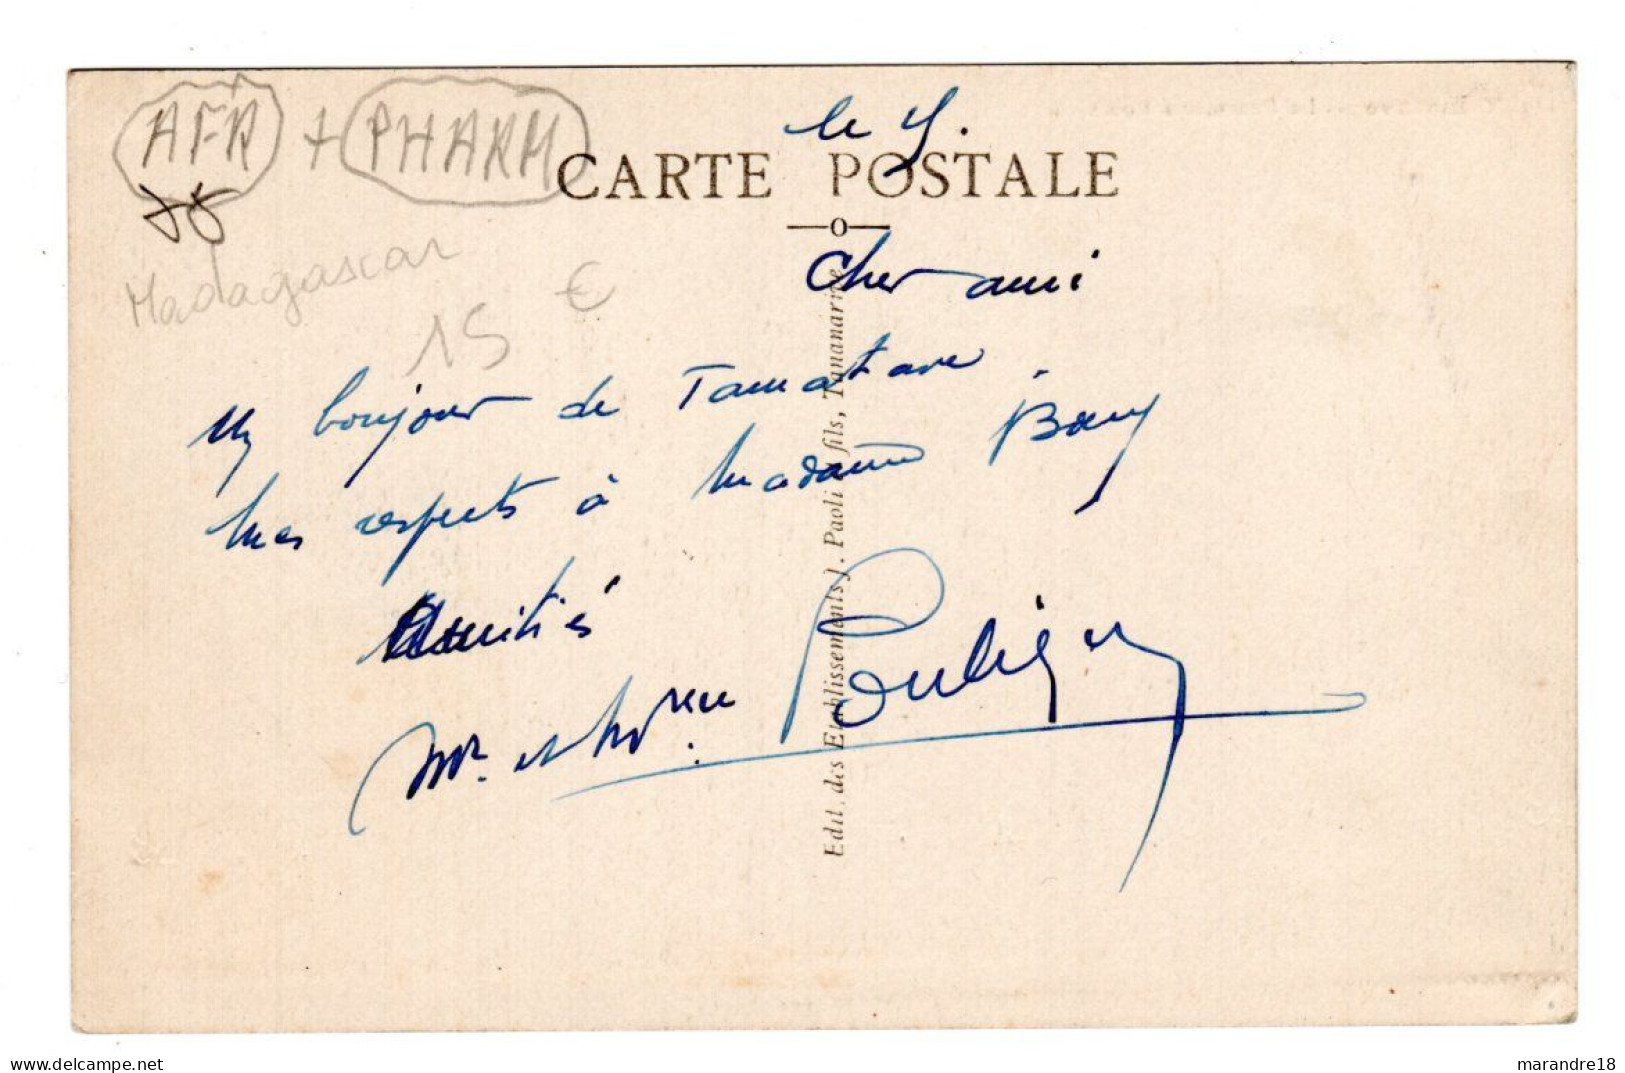 AFR + PHARM
le
CARTE POSTALE
Madagascar
15 €
Cher ami
Un bonjour de Tamatave.
Mes respects à Madame
Amitiés
Mr et
Edit. des Etablissements J. Paoli fils, Tananarive
delcampe.net
marandre18